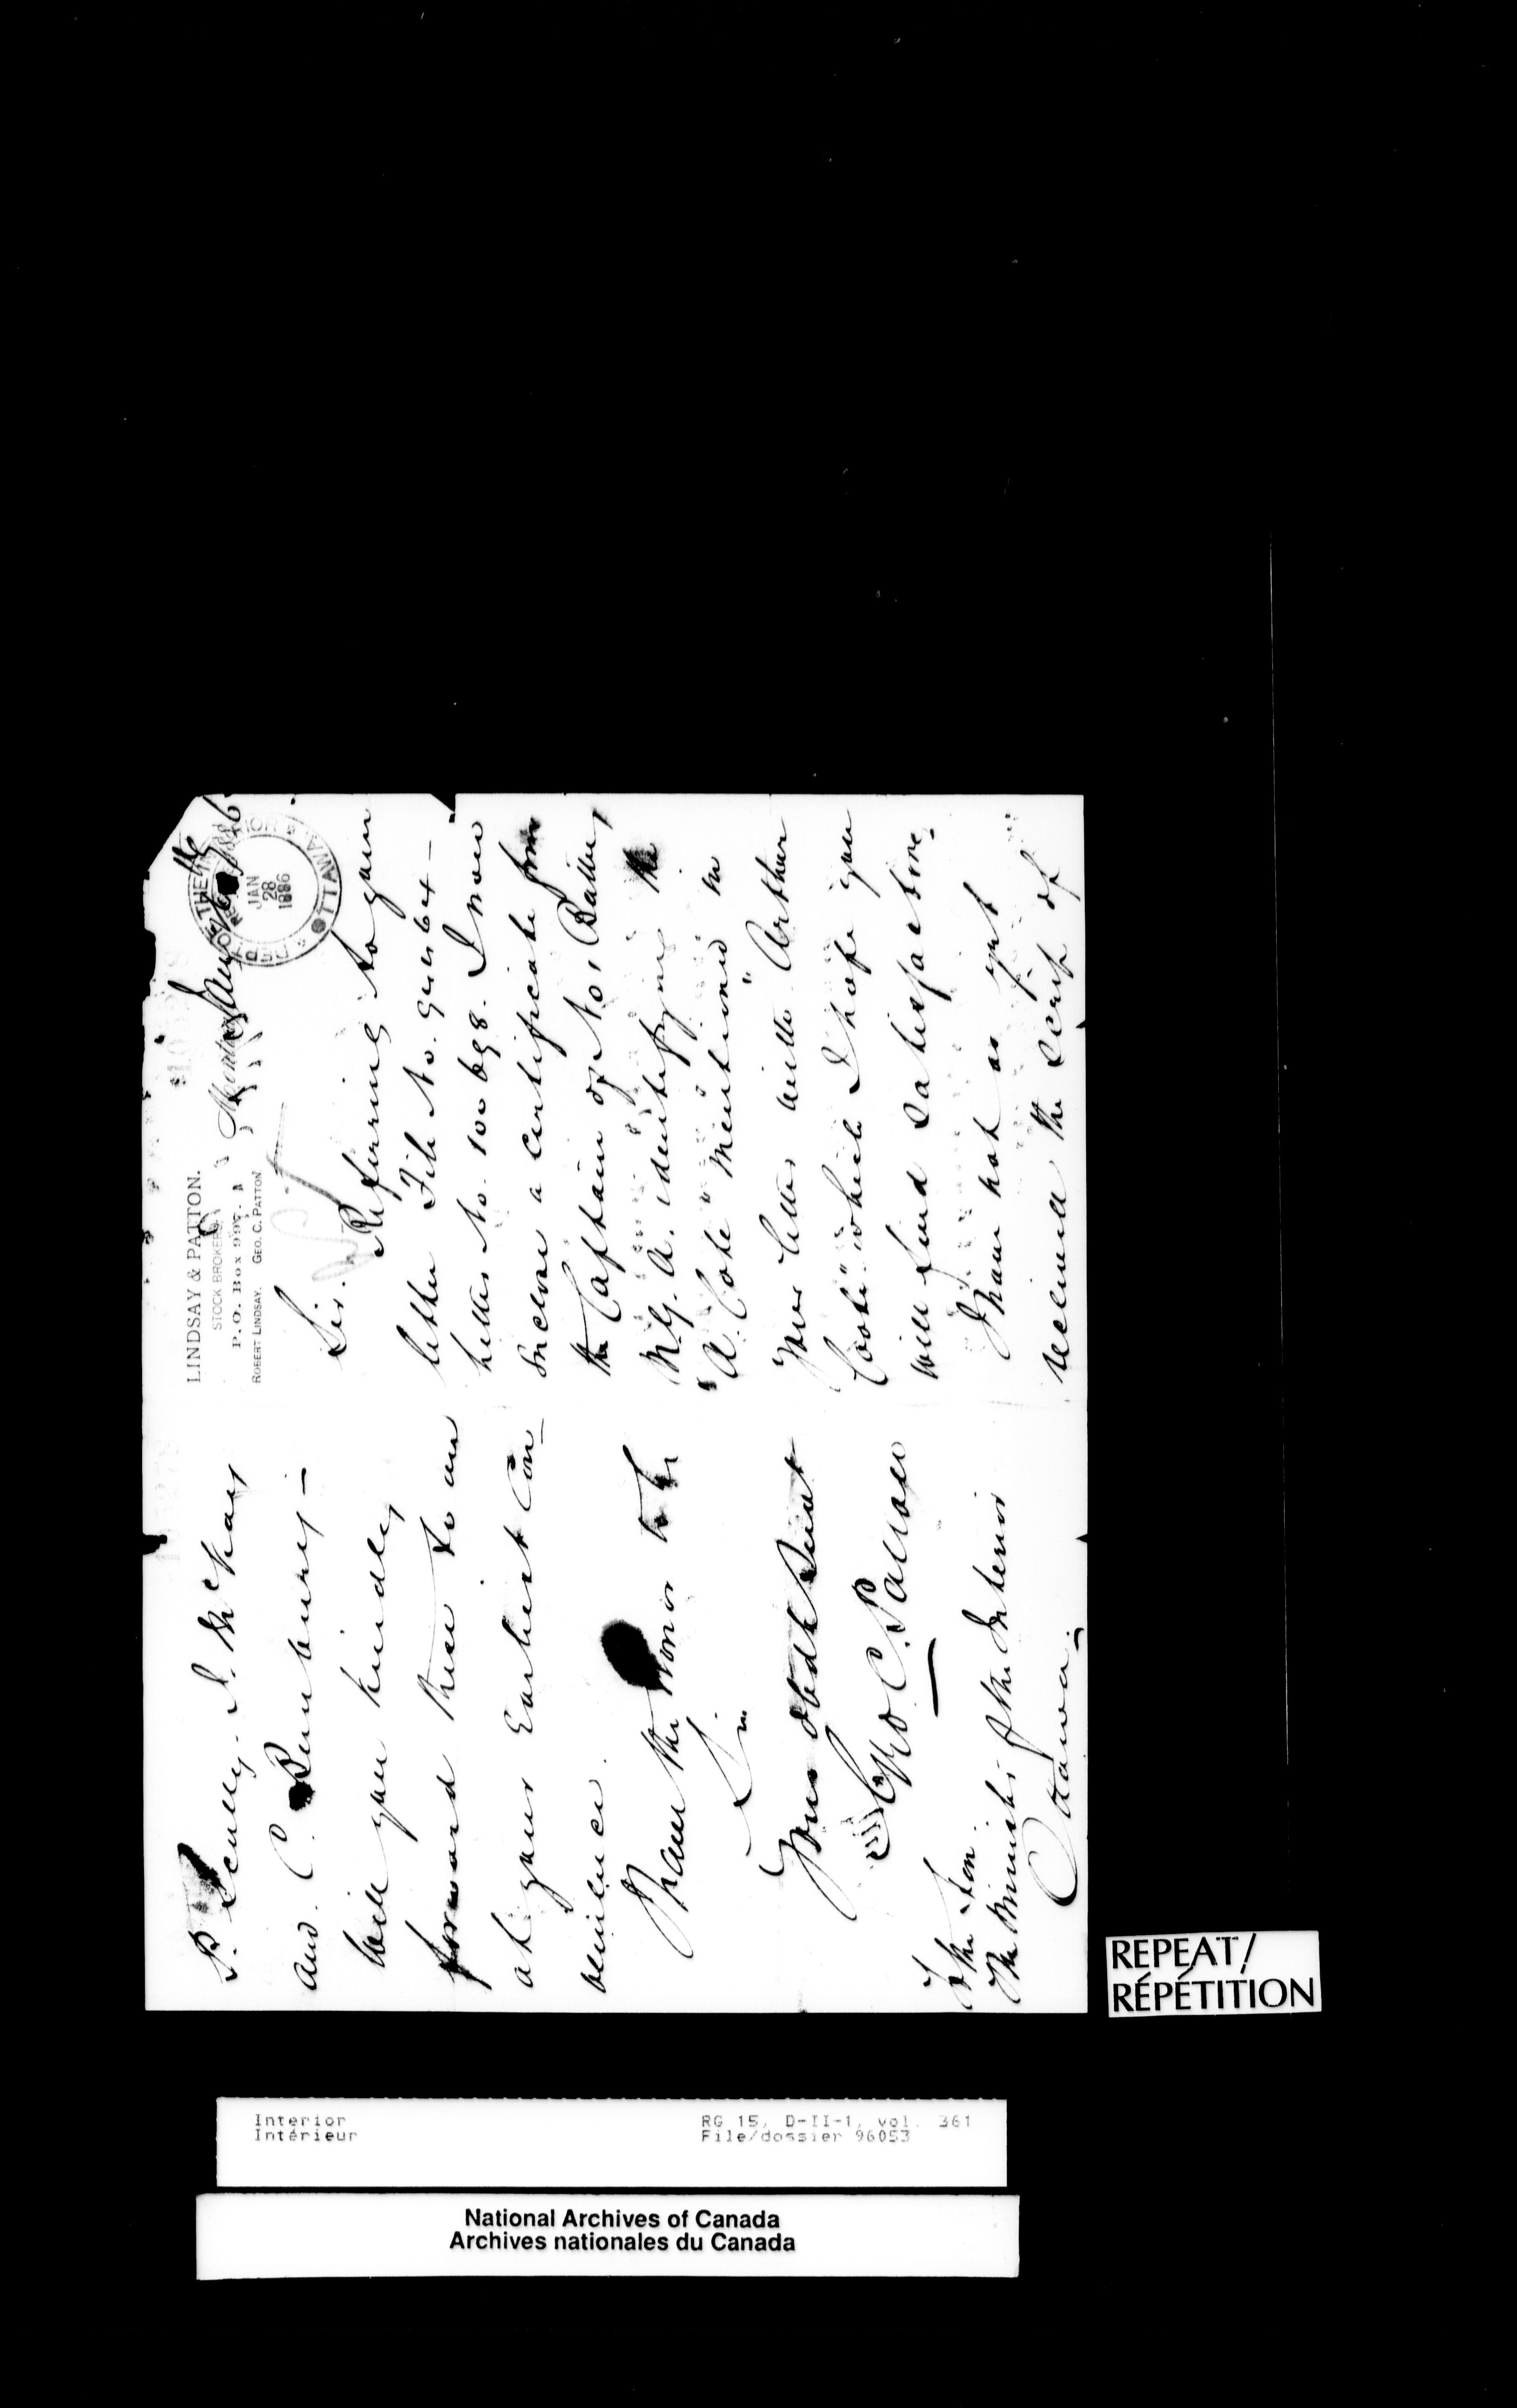 LINDSAY & PATTON.
STOCK BROKERS.
P. O. Box 997.
ROBERT LINDSAY. GEO. C. PATTON
Montreal 1886
DEPT OF THE INTERIOR
JAN
28
1886
OTTAWA
Sir.
Referring to your
letter File No.
letter No. 100698. I now
enclose a certificate from
the Captain of No 1 Battery
M.G.A. identifying the
"A. Cote" mentioned in
your letter with "Arthur
Coote" which I hope you
will find satisfactory.
I have not as yet
received the scrip of
P. Scully. J. McKay
and C. Bunbury —
Will you kindly
forward these to me
at your Earliest Con-
venience.
I have the honor to be
Sir
Your obdt Servt
Geo C. Patton
To the Hon.
The Minister of the Interior
Ottawa.
REPEAT/
RÉPÉTITION
Interior RG 15, D-II-1, vol. 361
Intérieur File/dossier 96053
National Archives of Canada
Archives nationales du Canada